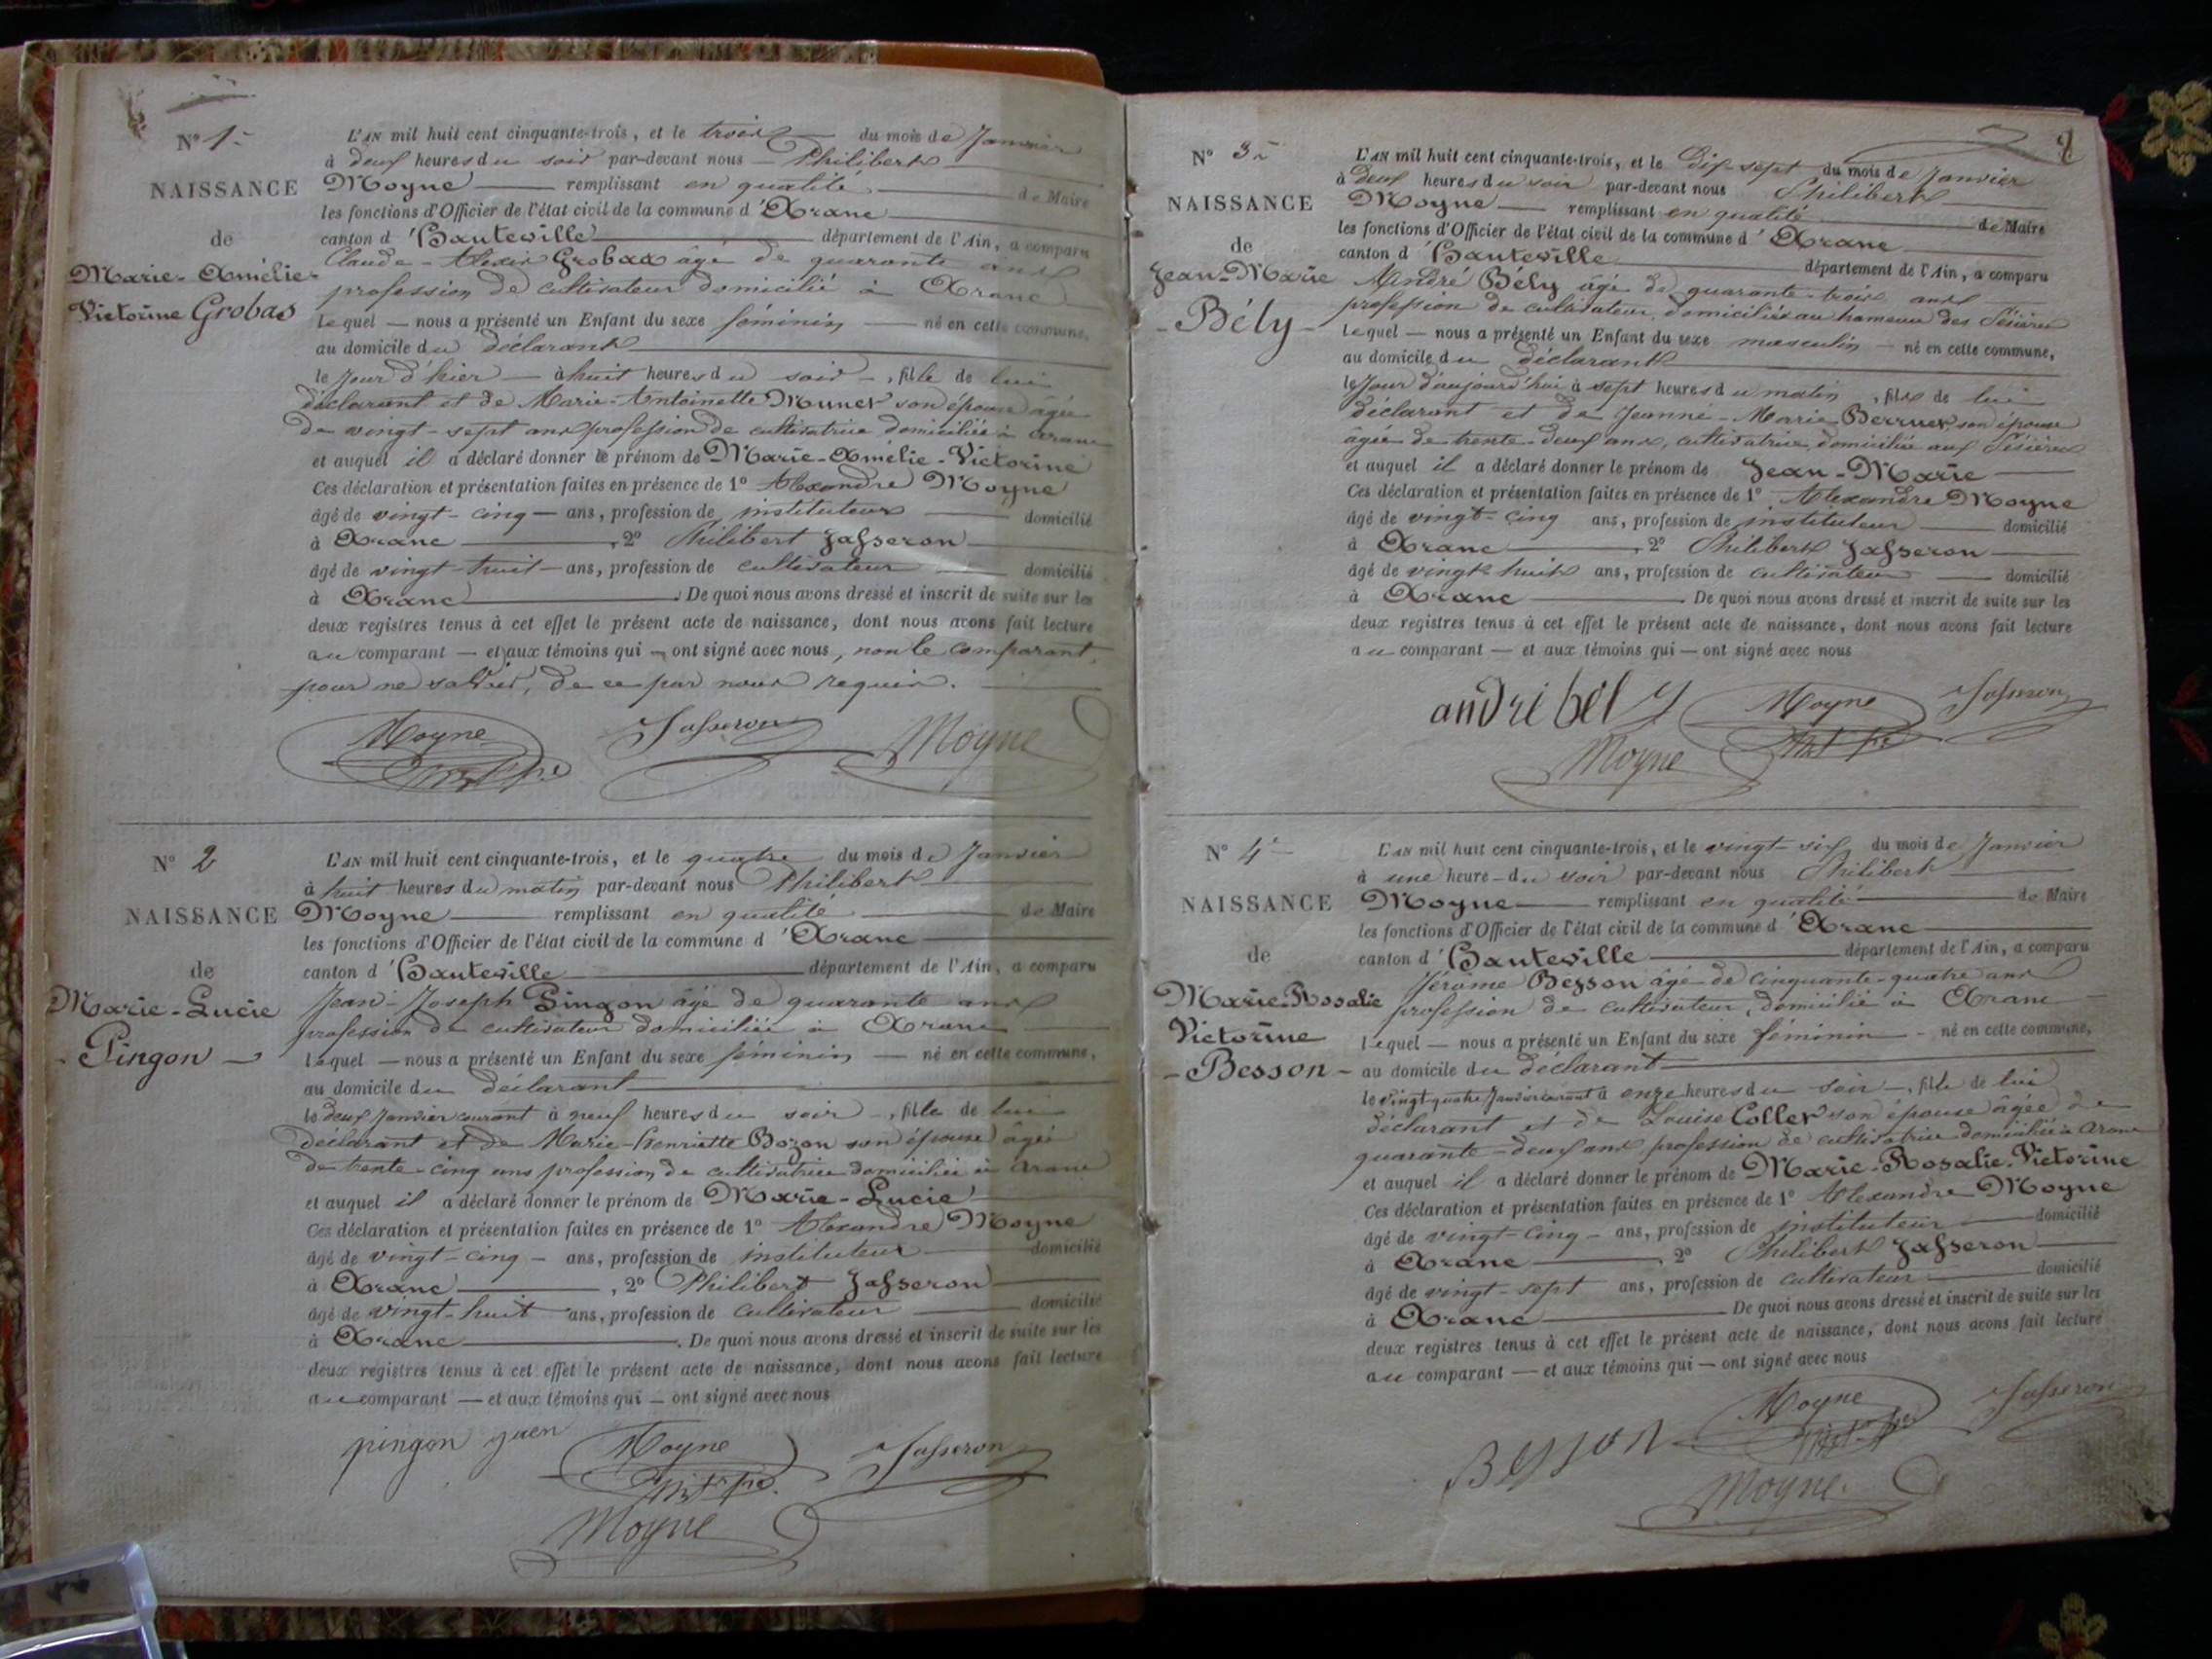 N° 1
NAISSANCE
de
Marie-Amélie-
Victorine Grobas
L'AN mil huit cent cinquante-trois, et le trois du mois de Janvier
à deux heures du soir par-devant nous Philibert
Moyne remplissant en qualité de Maire
les fonctions d'Officier de l'état civil de la commune d'Aranc
canton d'Hauteville département de l'Ain, a comparu
Claude-Alexis Grobas âgé de quarante ans
profession de cultivateur domicilié à Aranc
lequel nous a présenté un Enfant du sexe féminin né en cette commune,
au domicile du déclarant
le jour d'hier à huit heures du soir, fille de lui
déclarant et de Marie-Antoinette Munet son épouse âgée
de vingt-sept ans profession de cultivatrice domiciliée à Aranc
et auquel il a déclaré donner le prénom de Marie-Amélie-Victorine
Ces déclaration et présentation faites en présence de 1° Alexandre Moyne
âgé de vingt-cinq ans, profession de instituteur domicilié
à Aranc, 2° Philibert Jasseron
âgé de vingt-huit ans, profession de cultivateur domicilié
à Aranc. De quoi nous avons dressé et inscrit de suite sur les
deux registres tenus à cet effet le présent acte de naissance, dont nous avons fait lecture
au comparant et aux témoins qui ont signé avec nous, non le comparant,
pour ne savoir, de ce par nous requis.
Moyne Jasseron Moyne
N° 2
NAISSANCE
de
Marie-Lucie
- Pingon -
L'AN mil huit cent cinquante-trois, et le quatre du mois de Janvier
à huit heures du matin par-devant nous Philibert
Moyne remplissant en qualité de Maire
les fonctions d'Officier de l'état civil de la commune d'Aranc
canton d'Hauteville département de l'Ain, a comparu
Jean-Joseph Pingon âgé de quarante ans
profession de cultivateur domiciliée à Aranc
lequel nous a présenté un Enfant du sexe féminin né en cette commune,
au domicile du déclarant
le deux Janvier courant à neuf heures du soir, fille de lui
déclarant et de Marie-Henriette Bozon son épouse âgée
de trente-cinq ans profession de cultivatrice domiciliée à Aranc
et auquel il a déclaré donner le prénom de Marie-Lucie
Ces déclaration et présentation faites en présence de 1° Alexandre Moyne
âgé de vingt-cinq ans, profession de instituteur domicilié
à Aranc, 2° Philibert Jasseron
âgé de vingt-huit ans, profession de cultivateur domicilié
à Aranc. De quoi nous avons dressé et inscrit de suite sur les
deux registres tenus à cet effet le présent acte de naissance, dont nous avons fait lecture
au comparant et aux témoins qui ont signé avec nous
pingon Moyne Jasseron
Moyne
N° 3
NAISSANCE
de
Jean-Marie
- Bély -
L'AN mil huit cent cinquante-trois, et le dix-sept du mois de Janvier
à deux heures du soir par-devant nous Philibert
Moyne remplissant en qualité de Maire
les fonctions d'Officier de l'état civil de la commune d'Aranc
canton d'Hauteville département de l'Ain, a comparu
André Bély âgé de quarante-trois ans
profession de cultivateur, domicilié au hameau des
lequel nous a présenté un Enfant du sexe masculin né en cette commune,
au domicile du déclarant
le Jour d'aujourd'hui à sept heures du matin, fils de lui
déclarant et de Jeanne-Marie son épouse
âgée de trente-deux ans, cultivatrice, domiciliée aux
et auquel il a déclaré donner le prénom de Jean-Marie
Ces déclaration et présentation faites en présence de 1° Alexandre Moyne
âgé de vingt-cinq ans, profession de instituteur domicilié
à Aranc, 2° Philibert Jasseron
âgé de vingt huit ans, profession de cultivateur domicilié
à Aranc. De quoi nous avons dressé et inscrit de suite sur les
deux registres tenus à cet effet le présent acte de naissance, dont nous avons fait lecture
au comparant et aux témoins qui ont signé avec nous
andri bely Moyne Jasseron
Moyne
N° 4
NAISSANCE
de
Marie-Rosalie
Victorine
- Besson -
L'AN mil huit cent cinquante-trois, et le vingt-six du mois de Janvier
à une heure du soir par-devant nous Philibert
Moyne remplissant en qualité de Maire
les fonctions d'Officier de l'état civil de la commune d'Aranc
canton d'Hauteville département de l'Ain, a comparu
Jérôme Besson âgé de cinquante-quatre ans
profession de cultivateur, domicilié à Aranc
lequel nous a présenté un Enfant du sexe féminin né en cette commune,
au domicile du déclarant
le vingt-quatre Janvier courant à onze heures du soir, fille de lui
déclarant et de Louise Collet son épouse âgée de
quarante-deux ans profession de cultivatrice domiciliée à Aranc
et auquel il a déclaré donner le prénom de Marie-Rosalie-Victorine
Ces déclaration et présentation faites en présence de 1° Alexandre Moyne
âgé de vingt-cinq ans, profession de instituteur domicilié
à Aranc, 2° Philibert Jasseron
âgé de vingt-sept ans, profession de cultivateur domicilié
à Aranc. De quoi nous avons dressé et inscrit de suite sur les
deux registres tenus à cet effet le présent acte de naissance, dont nous avons fait lecture
au comparant et aux témoins qui ont signé avec nous
Besson Moyne Jasseron
Moyne